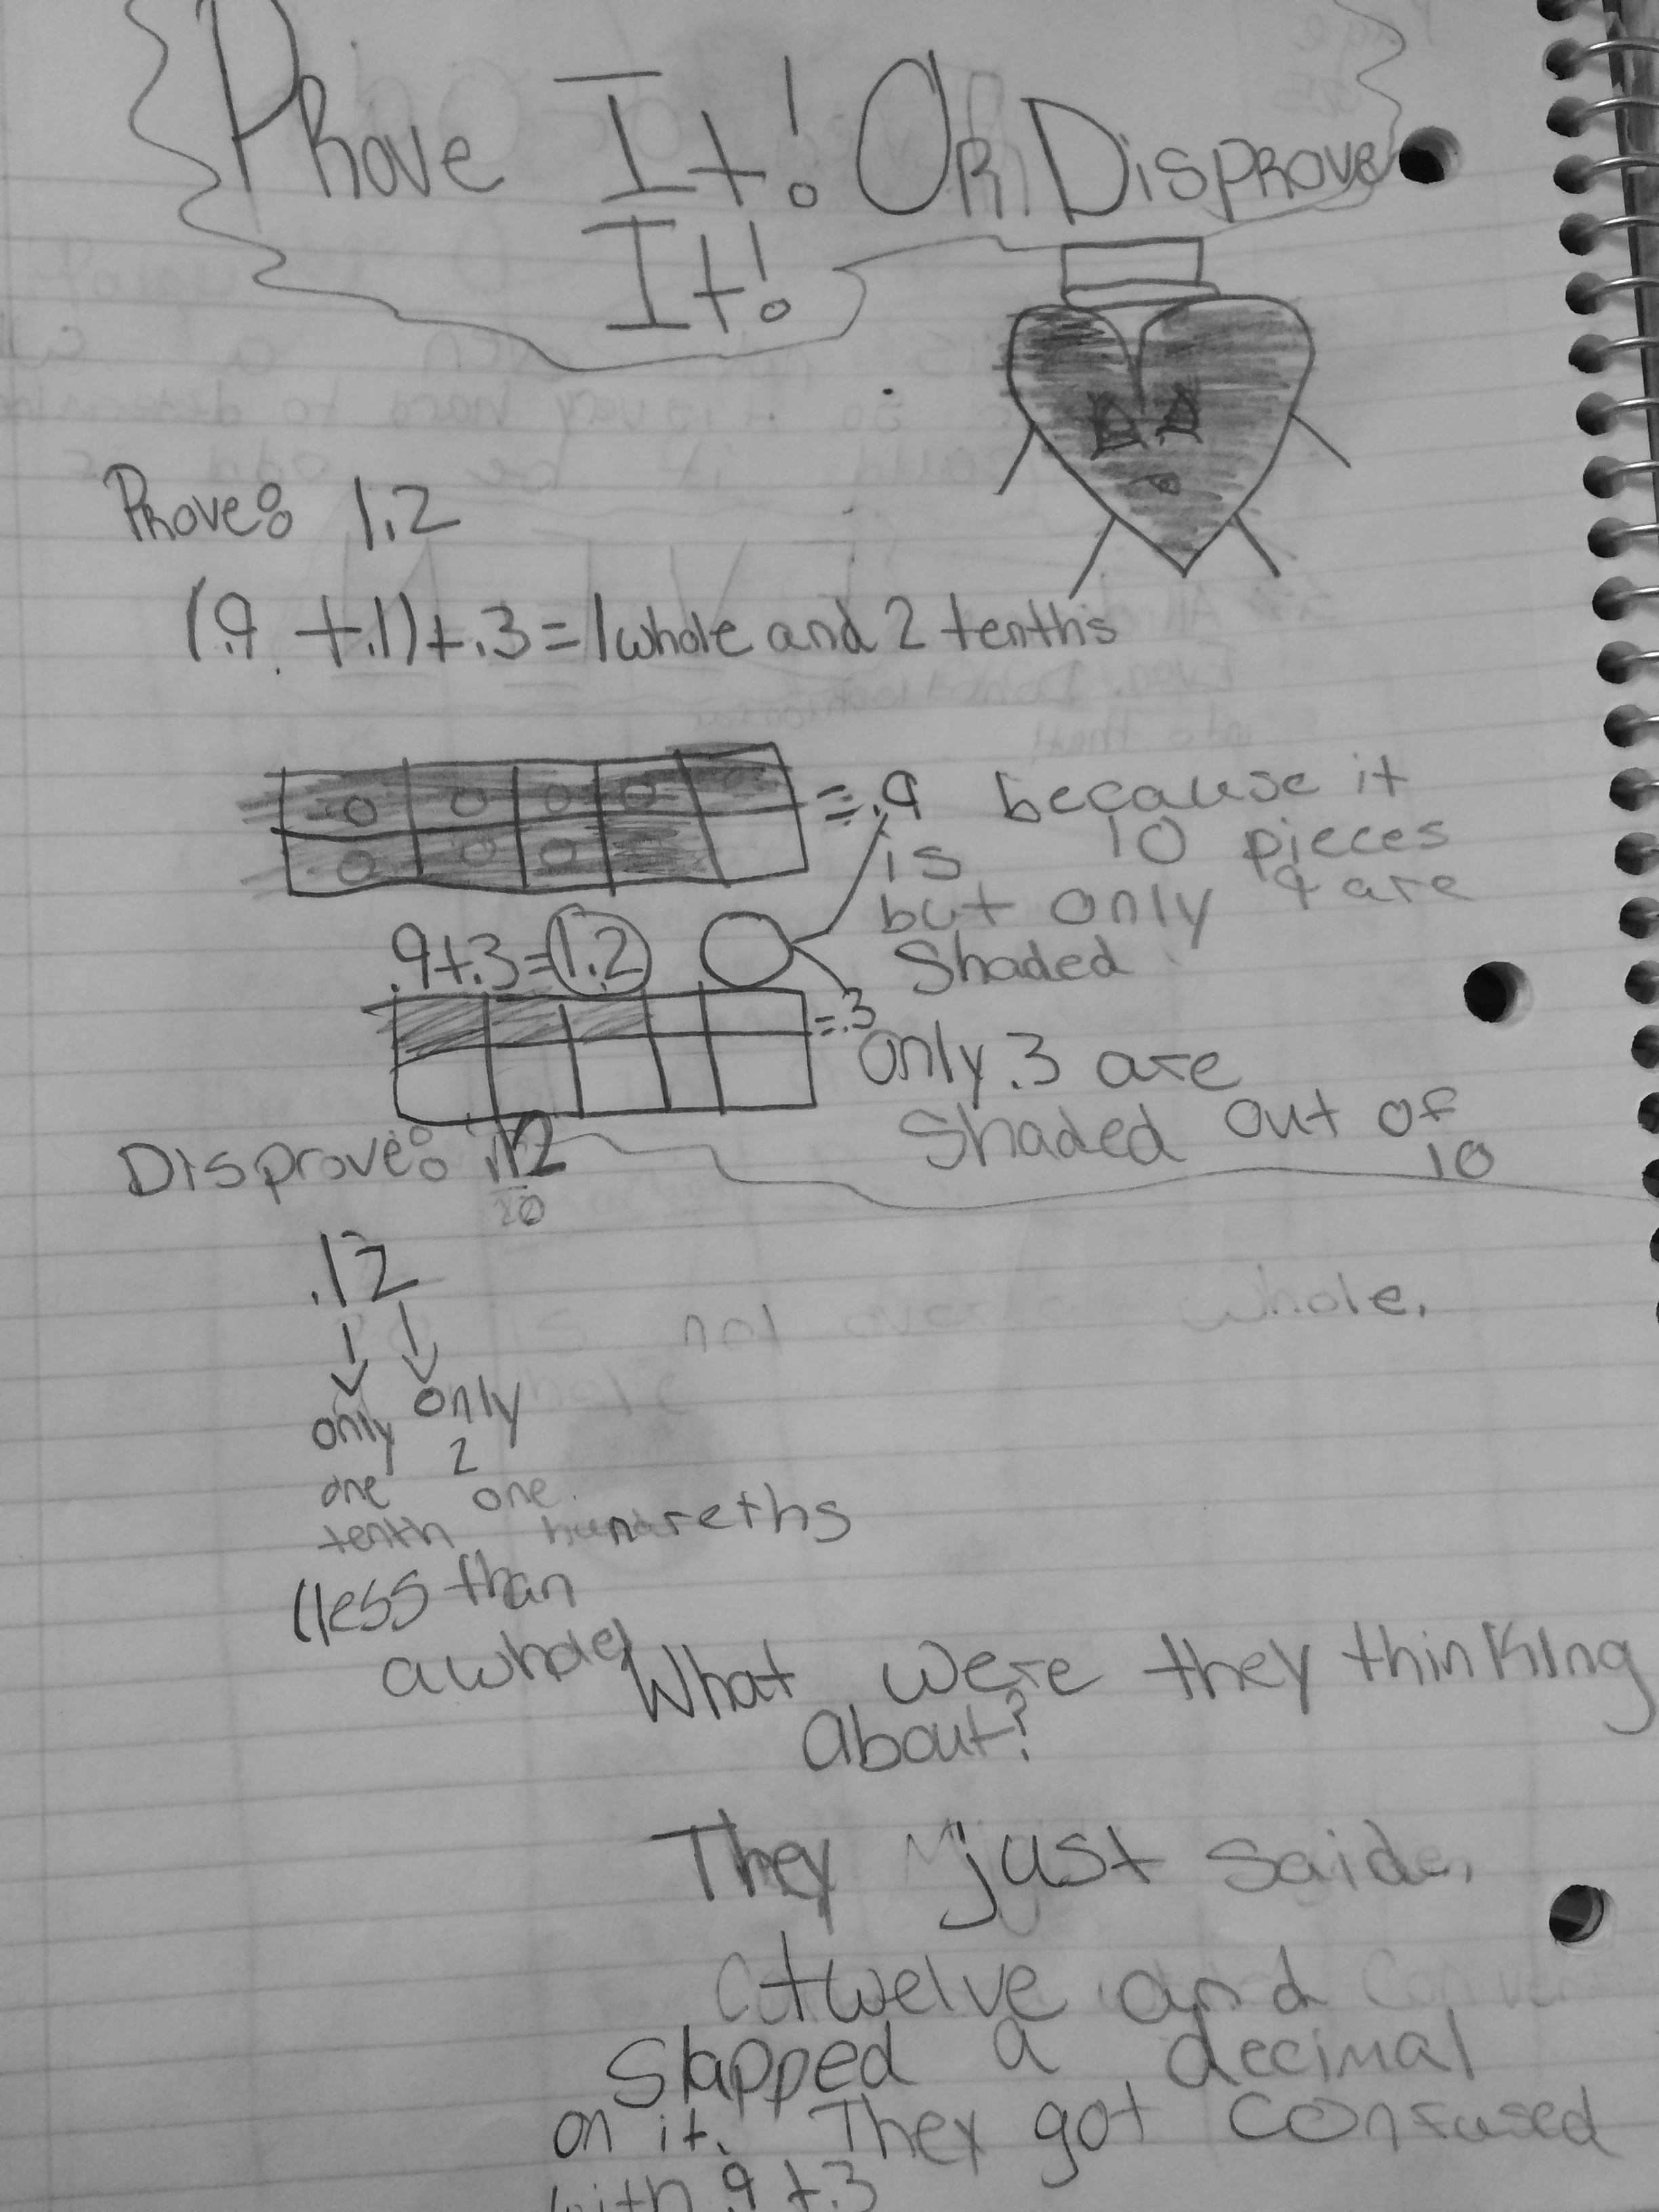 Prove It! Or Disprove
It!
Prove: 1.2
(.9 +.1)+.3=1 whole and 2 tenths
=.9 because it
is 10 pieces
but only 9 are
Shaded
.9+.3=1.2
=.3
Only .3 are
Shaded out of
10
Disprove: .12
.12
only only
one 2
tenth one hundreths
(less than
a whole)
What were they thinking
About?
They just said
twelve and
Slapped a decimal
on it. They got confused
with .9 +.3